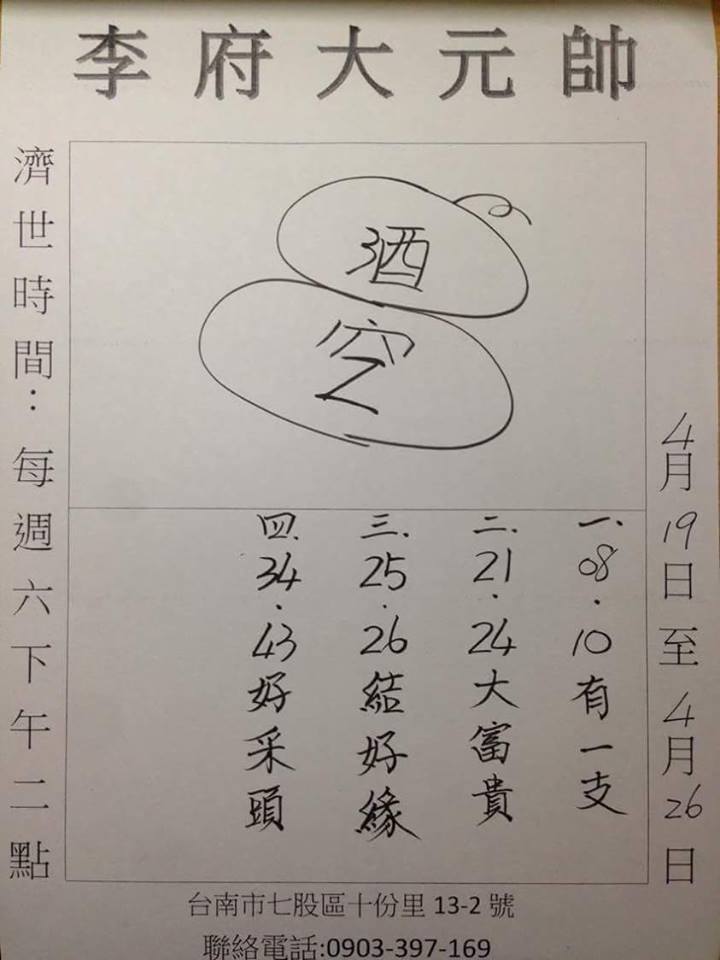 李府大元帥
4月19日至4月26日
酒
空
一、08.10有一支
二、21.24大富貴
三、25.26結好緣
四、34.43好采頭
濟世時間：每週六下午二點
台南市七股區十份里13-2號
聯絡電話:0903-397-169